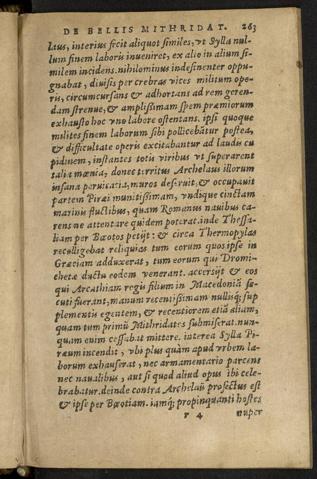 DE BELLIS MITHRIDAT. 263
laus, interius fecit aliquot similes, vt Sylla nul-
lum finem laboris inueniret, ex alio in alium si-
milem incidens. nihilominus indesinenter oppu-
gnabat, diuisis per crebras vices militum ope-
ris, circumcursans & adhortans ad rem geren-
dam strenue, & amplissimam spem præmiorum
exhausto hoc vno labore ostentans. ipsi quoque
milites finem laborum sibi pollicebātur postea,
& difficultate operis excitabantur ad laudis cu
pidinem, instantes totis viribus vt superarent
talia mœnia, donec territus Archelaus illorum
insana peruicatia, muros deseruit, & occupauit
partem Piræi munitissimam, vndique cinctam
marinis fluctibus, quam Romanus nauibus ca-
rens ne attentare quidem poterat. inde Thessa-
liam per Bœotos petijt: & circa Thermopylas
recollegebat reliquias tum eorum quos ipse in
Græciam adduxerat, tum eorum qui Dromi-
chetæ ductu eodem venerant. accersijt & eos
qui Arcathiam regis filium in Macedoniā se-
cuti fuerant, manum recentissimam nulliusq; sup
plementis egentem, & recentiorem etiā aliam,
quam tum primū Mithridates submiserat. nun-
quam enim cessabat mittere. interea Sylla Pi-
ræum incendit, vbi plus quàm apud vrbem la-
borum exhauserat, nec armamentario parcens
nec naualibus, aut si quod aliud opus ibi cele-
brabatur. deinde contra Archelaū profectus est
& ipse per Bœotiam. iamq; propinquanti hostes
r 4 nuper